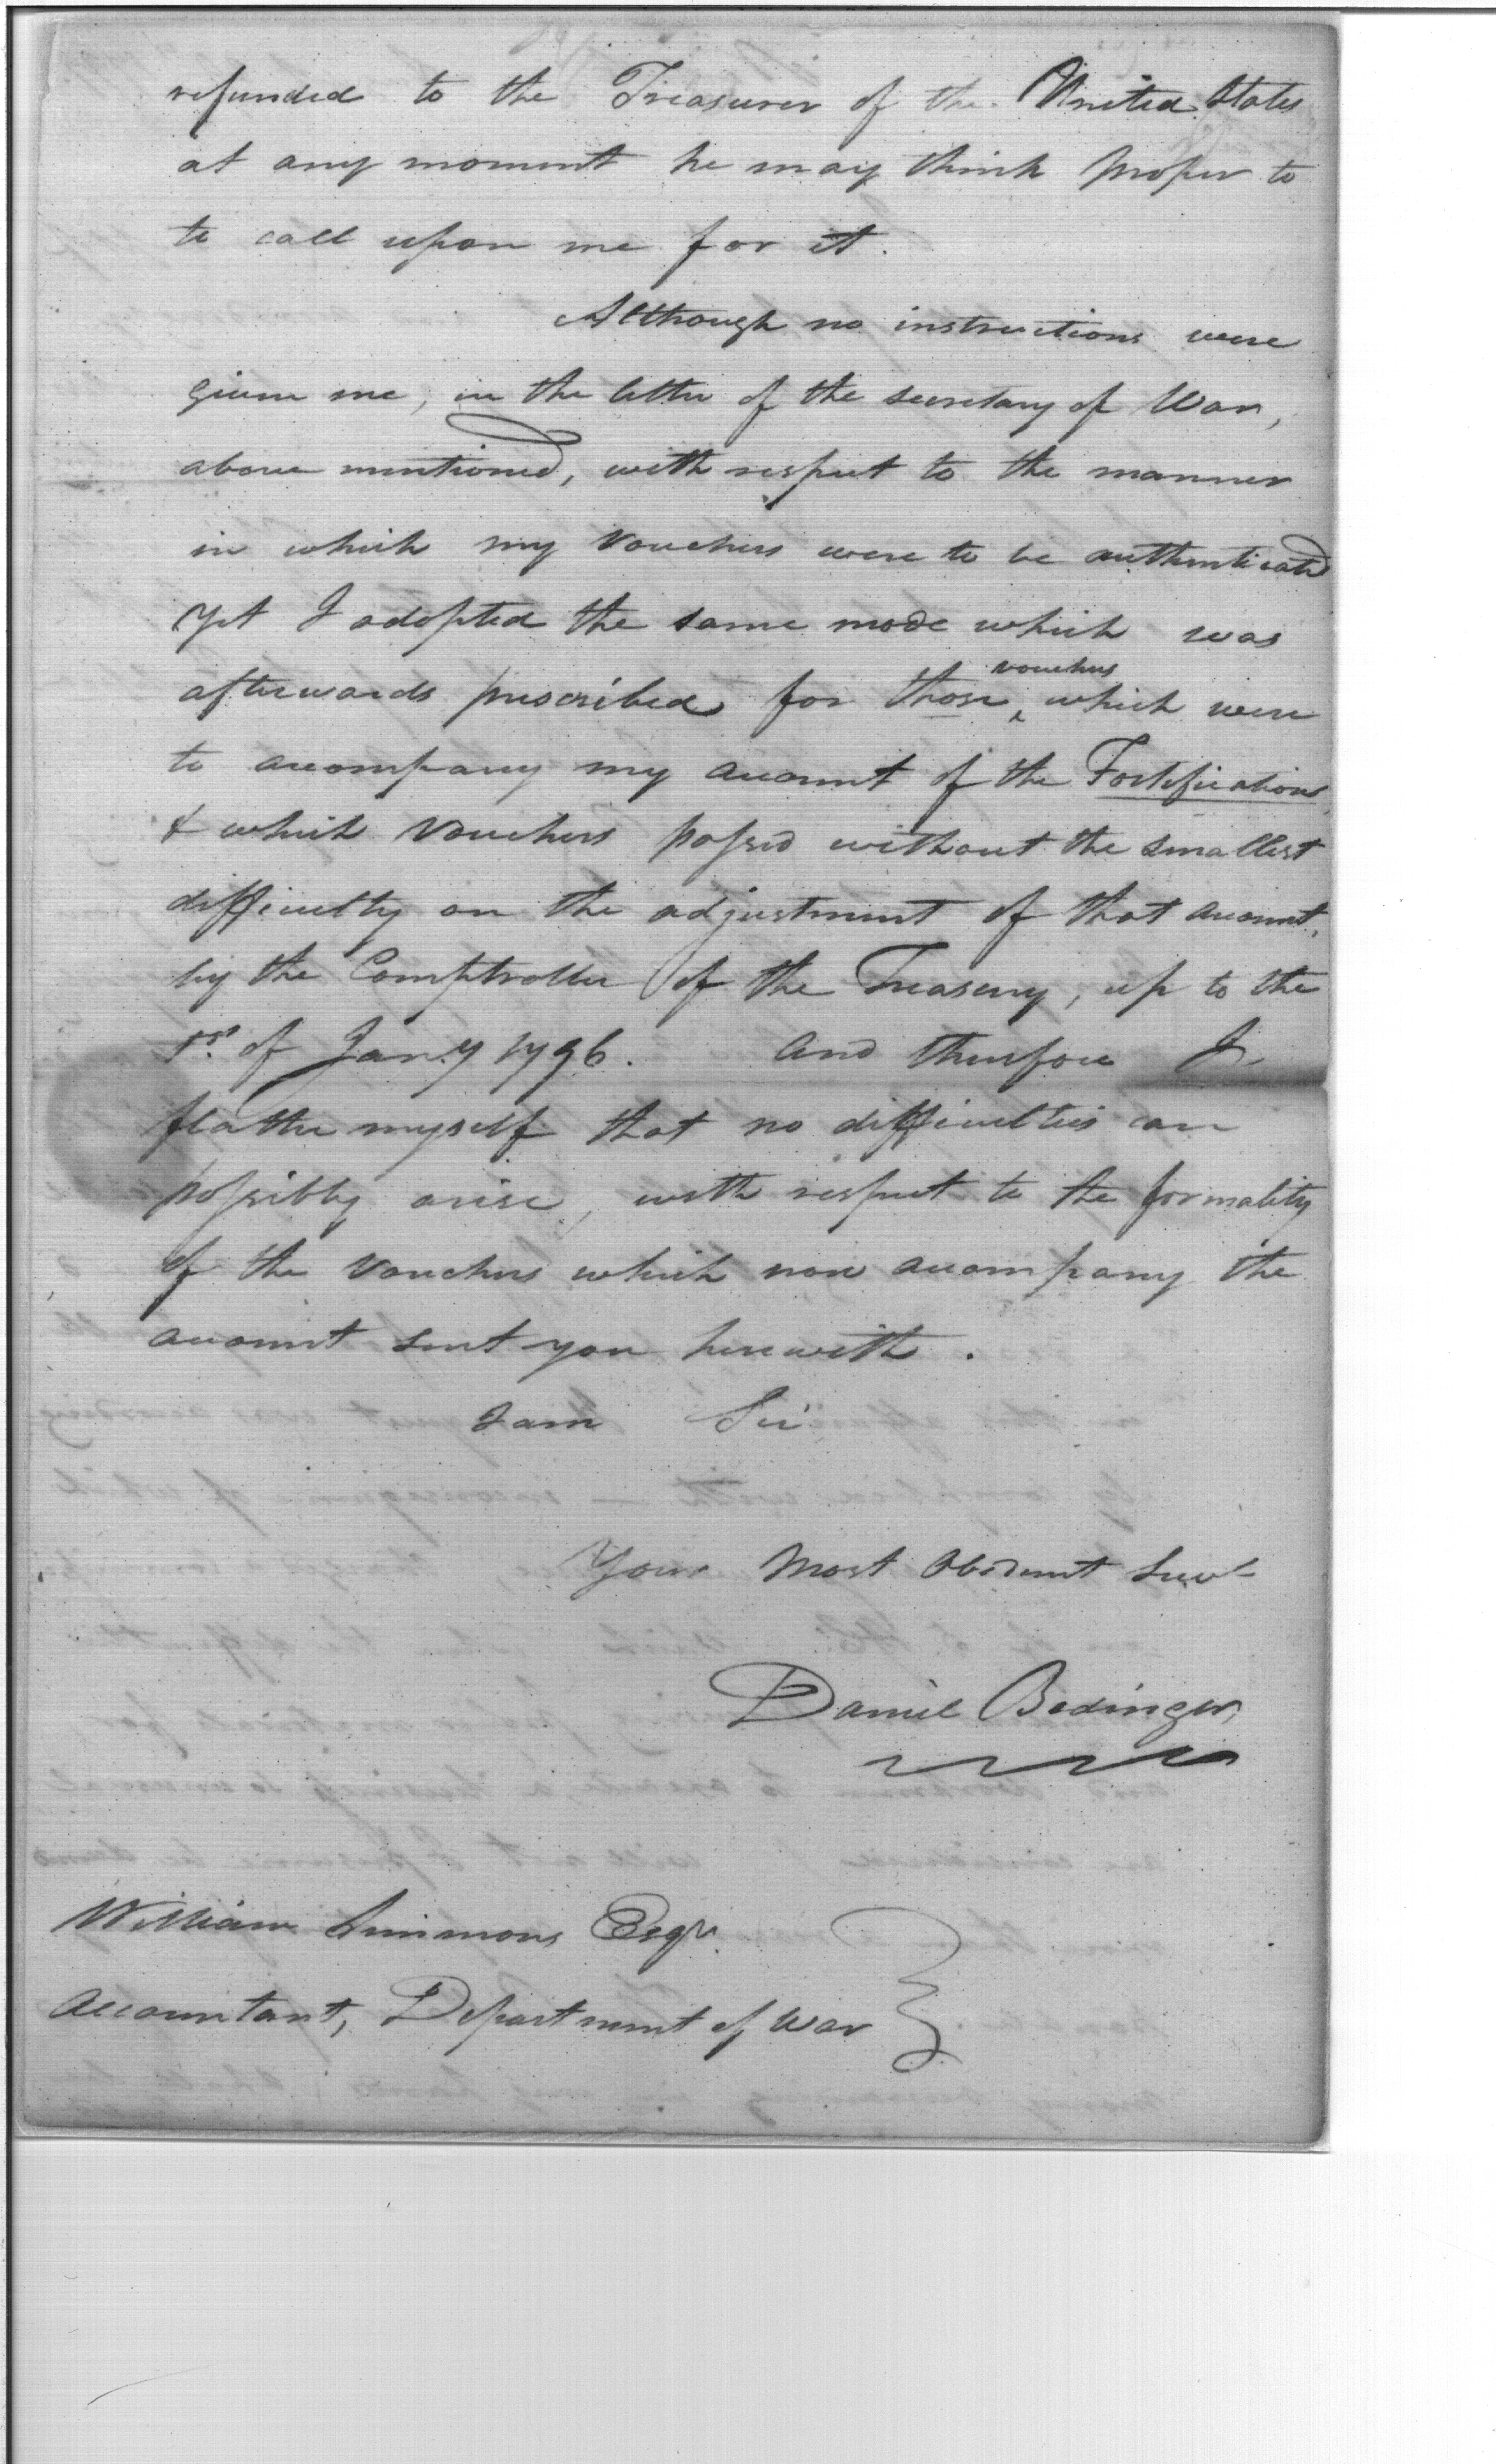 refunded to the Treasurer of the United States
at any moment he may think proper to
to call upon me for it.
Although no instructions were
given me, in the letter of the secretary of War,
above mentioned, with respect to the manner
in which my Vouchers were to be authenticated
yet I adopted the same mode which was
afterwards prescribed for those vouchers which were
to accompany my account of the Fortifications
& which Vouchers passed without the smallest
difficulty on the adjustment of that account,
by the Comptroller of the Treasury, up to the
1st. of Jany 1796. And therefore I
flatter myself that no difficulties can
possibly arise, with respect to the formality
of the Vouchers which now accompany the
account sent you herewith.
I am Sir
Your Most Obedient Servt
Daniel Bedinger,
William Simmons Esqr.
Accountant, Department of War